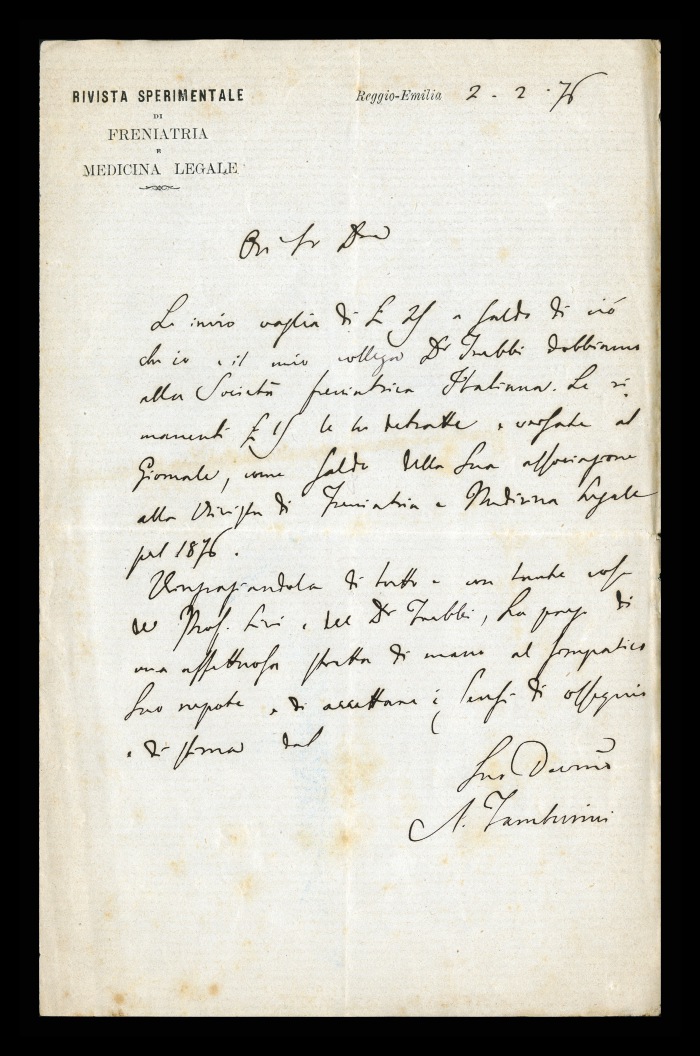 RIVISTA SPERIMENTALE
DI
FRENIATRIA
E
MEDICINA LEGALE
Reggio-Emilia 2 - 2 - 76
Le invio vaglia di £ 25 a saldo di ciò
che io e il mio collega Dr Trebbi dobbiamo
alla Società freniatrica Italiana. Le ri-
manenti £ 15 le ho detratte e versate al
Giornale, come saldo della Sua associazione
alla Rivista di Freniatria e Medicina Legale
pel 1876.
Ringraziandola di tutto e con tante cose
del Prof. Livi e del Dr Trebbi, La prego di
una affettuosa stretta di mano al simpatico
Suo nepote e di accettare i sensi di ossequio
e di stima dal
Suo Devmo
A. Tamburini